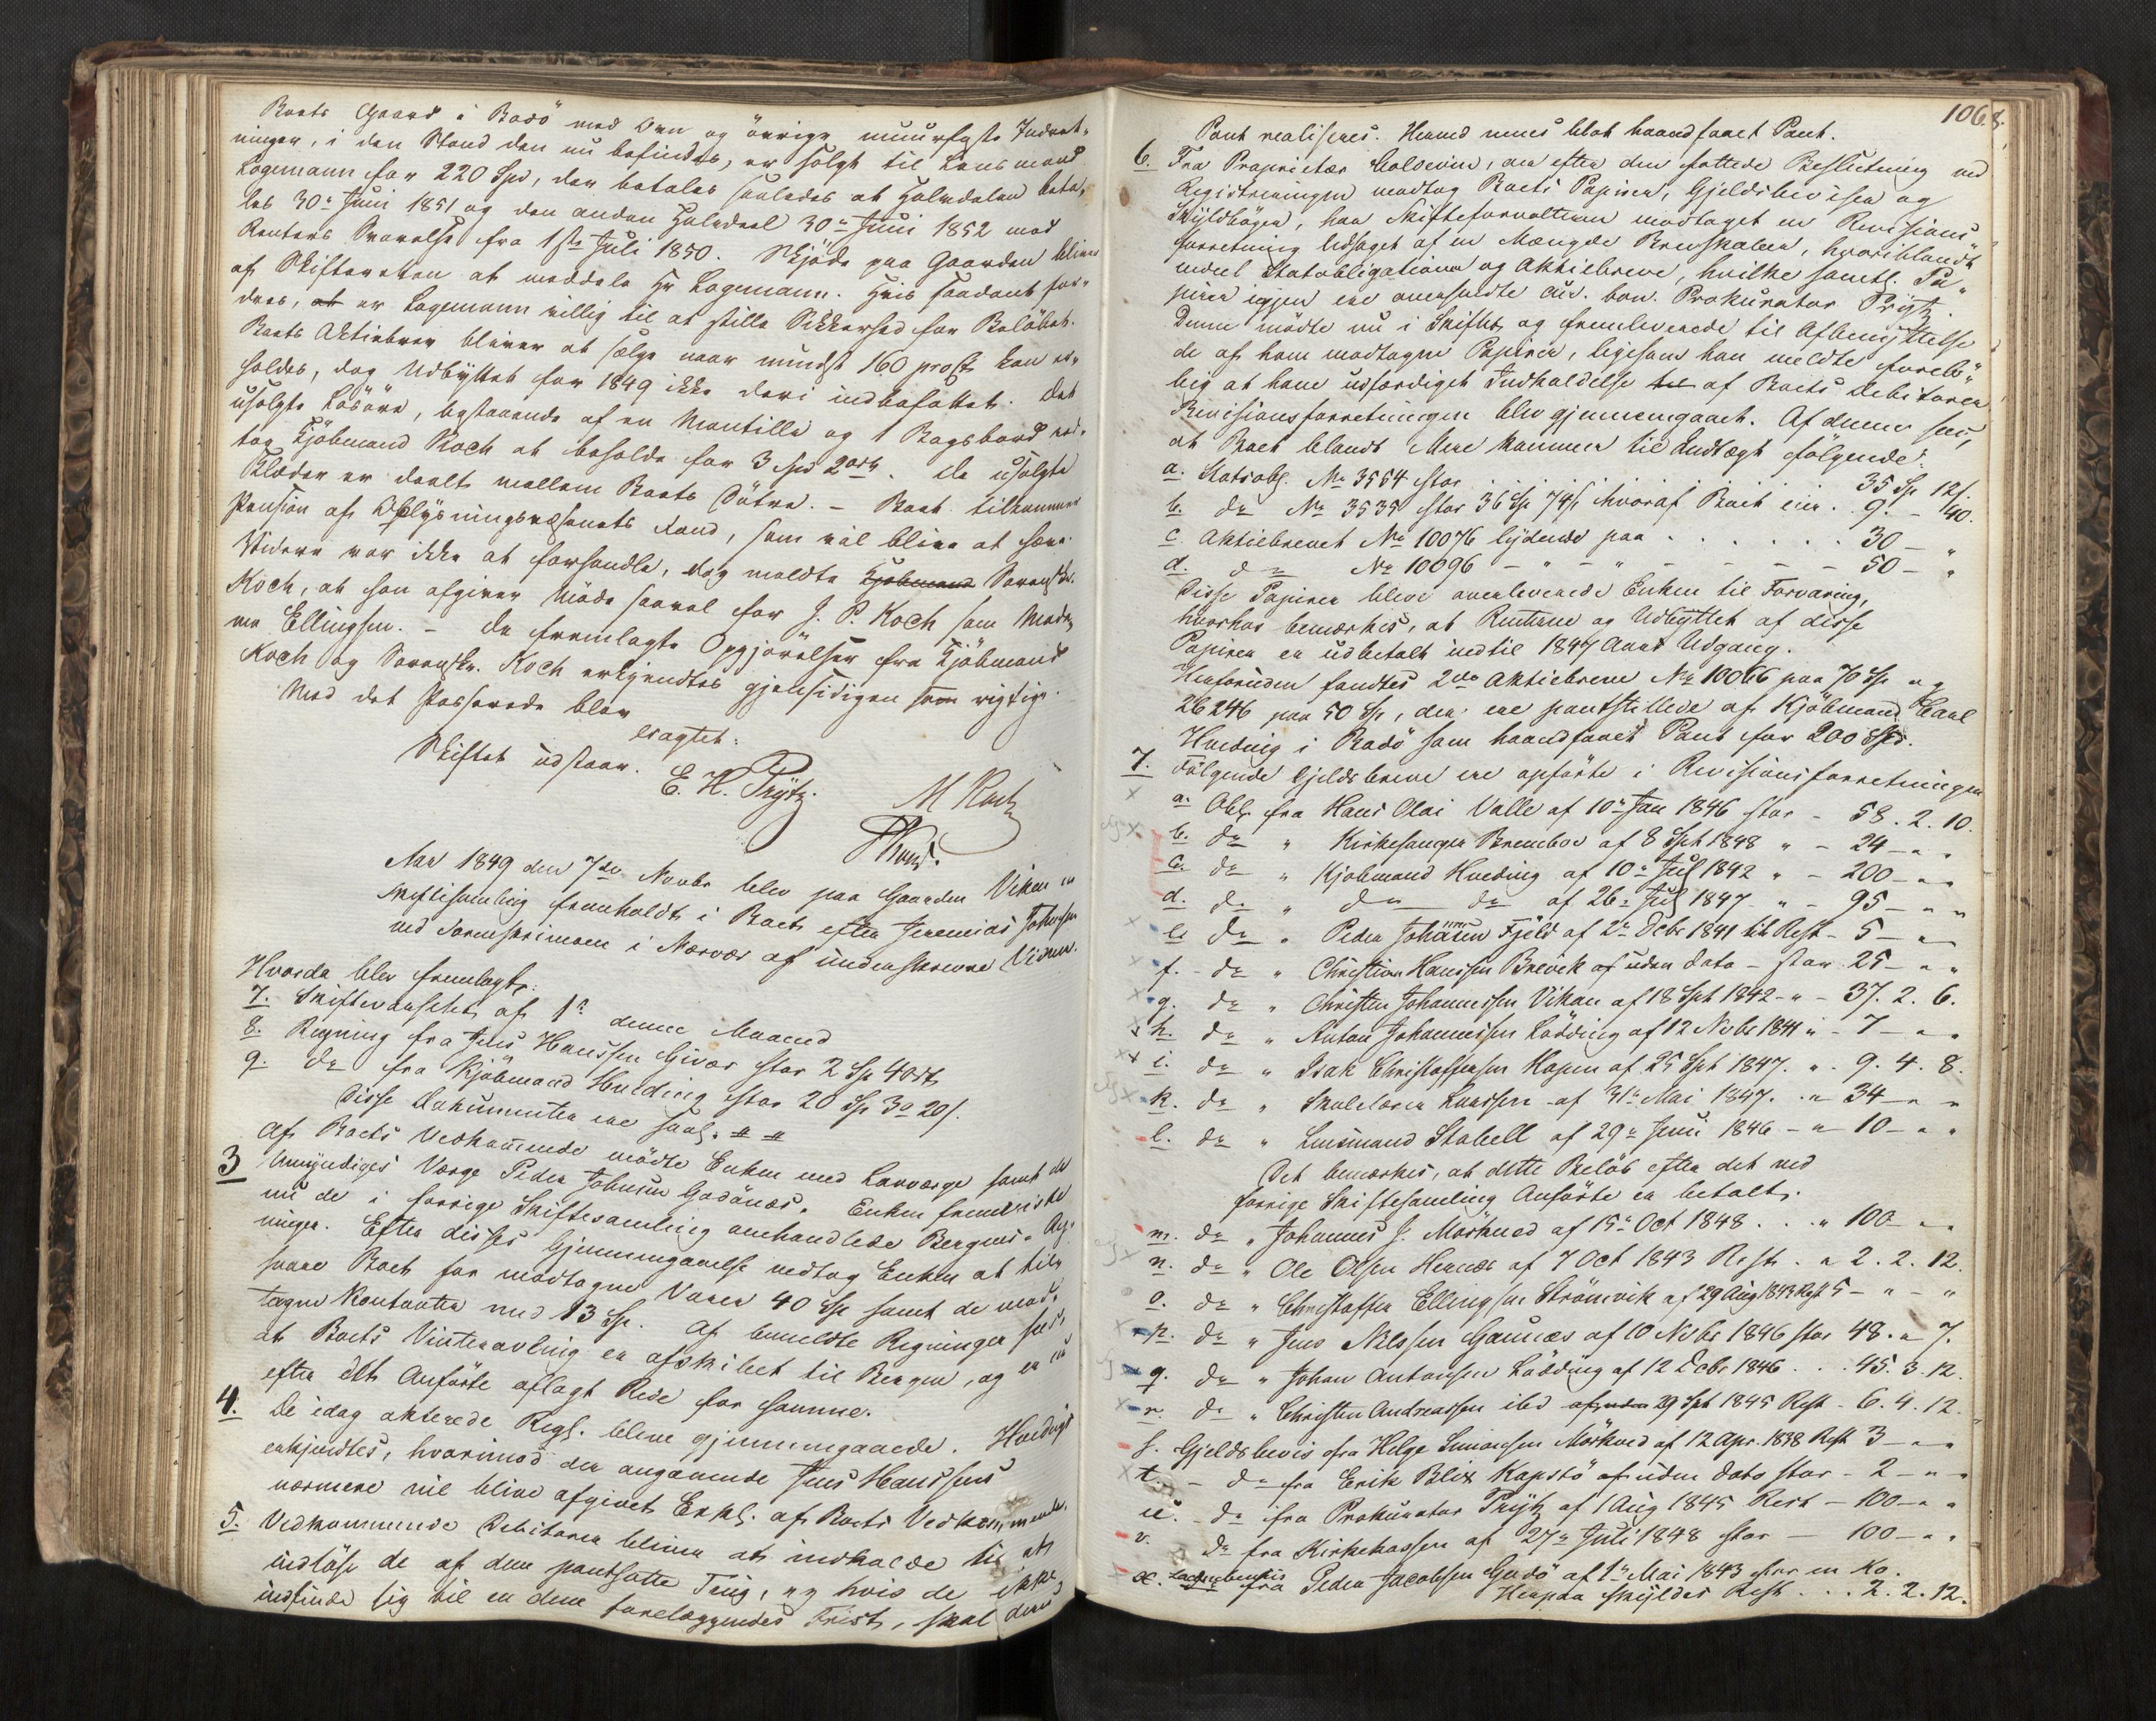 Boets Gaard i Bodö med Ovn og övrige muurfaste Indret-
ninger, i den Stand den nu befindes, er solgt til Lensmand
Lagemann for 220 Spd, der betales saaledes at Halvdelen beta-
les 30te Juni 1851 og den anden Halvdeel 30te Juni 1852 med
Renters Svarelse fra 1ste Juli 1850. Skjöde paa Gaarden bliver
af Skifteretten at meddele Hr Lagemann. Hvis saadant for-
dres, at er Lagemann villig til at stille Sikkerhed for Belöbet.
Boets Aktiebrev bliver at sælge naar mindst 160 proCt kan er-
holdes, dog Udbyttet for 1849 ikke deri indbefattet. Det
usolgte Lösöre, bestaaende af en Mantille og 1 Bagsbord ved-
tog Kjöbmand Koch at beholde for 3 Spd 2 ort. De usolgte
Klæder er deelt mellem Boets Döttre. – Boet tilkommer
Pension af Oplysningsvæsenets Fond, som vil blive at hæve.
Videre var ikke at forhandle, dog meldte Kjöbmand Sorenskr.
Koch, at han afgiver Möde saavel for J. P. Koch som Mada-
me Ellingsen. – De fremlagte Opgjörelser fra Kjöbmand
Koch og Sorenskr. Koch erkjendtes gjensidigen som rigtige.
Med det Passerede blev
eragtet:
Skiftet udstaar.
E. H. Prÿtz. M Koch
Aar 1849 den 7de Novbr blev paa Gaarden Vikan en
Skiftesamling fremholdt i Boet efter Jeremias Johnsen
ved Sorenskriveren i Nærvær af underskrevne Vidner.
Hvorda blev fremlagt:
7. Skifteudsettet af 1te denne Maaned
8. Regning fra Jens Hanssen Givær stor 2 Sp 4 ort
9. do fra Kjöbmand Hveding stor 20 Sp 3 o 20 s.
Disse Dokumenter ere saal. " "
Af Boets Vedkommende mödte Enken med Lavværge samt de
3 Umyndiges Værge Peder Johnsen Godönæs. Enken fremviste
nu de i forrige Skiftesamling omhandlede Bergens-Reg-
ninger. Efter disses Gjennemgaaelse vedtog Enken at til-
svare Boet for modtagne Varer 40 Sp samt de mod-
tagne Kontanter med 13 Sp. Af bemeldte Regninger sees,
at Boets Vinteravling er afskibet til Bergen, og er nu
efter dets Anförte aflagt Rede for samme.
4. De idag akterede Regl. bleve gjennemgaaede. Hvedings
erkjendtes, hvorimod der angaaende Jens Hanssens
nærmere vil blive afgivet Erkl. af Boets Vedkommende.
5. Vedkommende Debitorer bliver at indkalde til at
indlöse de af dem pantsatte Ting, og hvis de ikke
indfinde sig vil en dem forelæggendes Frist, skal deres
1068.
Pant realiseres. Herved menes blot haandfaaet Pant.
6. Fra Proprietær Coldevin, der efter den fattede Beslutning ved
Registreringen modtog Boets Papirer, Gjeldsbeviser og
Skyldböger, har Skifteforvalteren modtaget en Revisions-
forretning ledsaget af en Mængde Brevskaber, hvoriblandt
endeel Statobligationer og Aktiebreve, hvilke samtl. Pa-
pirer igjen ere oversendte cur. bon. Prokurator Prÿtz.
Denne mödte nu i Skiftet og fremleverede til Afbenyttelse
de af ham modtagne Papirer, ligesom han meldte forelö-
big at have udfærdiget Indkaldelse til af Boets Debitorer
Revisionsforretningen blev gjennemgaaet. Af denne sees,
at Boet blandt Mere kommer til Indtægt fölgende:
a. Statsobl. No 3554 stor . . . . . . 35 Sp. 12 s.
b. do No 3535 stor 36 Sp 74 s hvoraf Boet eier . 9. – 40.
c. Aktiebrevet No 10076 lydende paa . . . . . . 30 – "
d. do No 10096 – " – " – – – – 50 – "
Disse Papirer bleve overleverede Enken til Forvaring,
hvorhos bemærkes, at Renterne og Udbyttet af disse
Papirer er udbetalt indtil 1847 Aars Udgang.
Henforuden fandtes 2de Aktiebreve No 10066 paa 70 Sp og
26246 paa 50 Sp, der ere pantstillede af Kjöbmand Carl
Hveding i Bodö som haandfaaet Pant for 200 Spd.
7. Fölgende Gjeldsbreve ere opförte i Revisionsforretningen
a. Obl. fra Hans Olai Valle af 10de Jan 1846 stor – 58. 2. 10.
b. do " Kirkesanger Bremboe af 8 Sept 1848 " – 24 – " "
c. do " Kjöbmand Hveding af 10de Jul 1842 " – 200 – " "
d. do " do do af 26de Jul 1847 – " – 95 – " "
e. do " Peder Johansen Fjeld af 2de Decbr 1841 til Rest – 5 – " "
f. – do " Christian Hanssen Brevik af uden dato – stor 25 – " "
g. do " Christen Johannessen Vikan af 18 Sept 1842 – " – 37. 2. 6.
h. do " Anton Johannessen Lödding af 12 Novbr 1844 " – 7 – " "
i. do " Isak Christophersen Hopen af 25 Sept 1847. " . 9. 4. 8.
k. do " Skolelærer Larssen af 31te Mai 1847. . " 34 – " "
l. do " Lensmand Stabell af 29de Juni 1846 – " 10 – " "
Det bemærkes, at dette Belöb efter det ved
forrige Skiftesamling Anförte er betalt.
m. do " Johannes J. Mörkved af 15de Oct 1848 . . . " 100 – " "
n. do " Ole Olsen Hernæs af 7 Oct 1843 Rest. . " 2. 2. 12.
o. do " Christoffer Ellingsen Strömvik af 29 Aug 1843 Rest 5 – " – "
p. do " Jens Nilssen Gaunæs af 10 Novbr 1846 stor 48. " 7.
q. do " Johan Antonsen Lödding af 12 Decbr 1846 . . . 45. 3. 12.
r. do " Christen Andreassen ibd af uden 29 Sept 1845 Rest – 6. 4. 12.
s. Gjeldsbevis fra Helge Simonsen Mörkved af 12 Apr. 1838 Rest 3 – " "
t. – do fra Erik Blix Kapstö af uden dato stor – 2 – " "
u. – do fra Prokurator Prÿtz af 1 Aug 1845 Rest – 100 – " "
v. do fra Kirkekassen af 27de Juli 1848 stor – 100 – " "
x. fra Peder Jacobsen Godö af 1te Mai 1843 stor en Ko.
Herpaa skyldes Rest . . . 2. 2. 12.